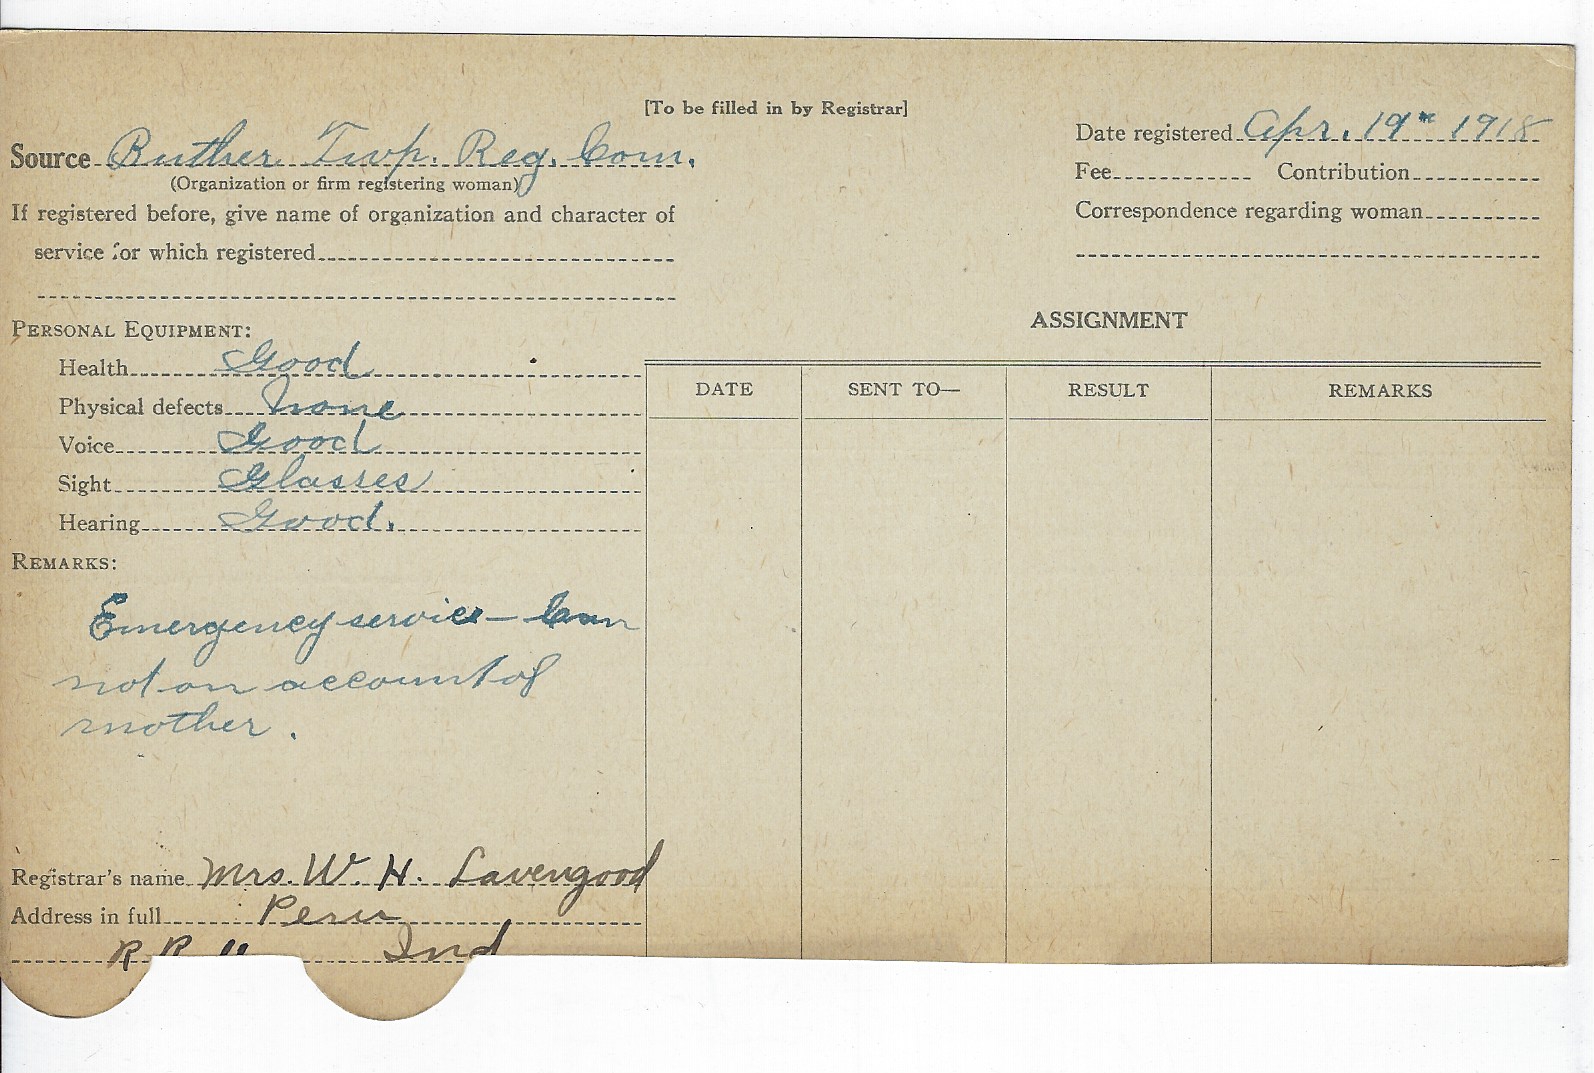 [To be filled in by Registrar]
Source Buther Twp. Reg. Com.
(Organization or firm registering woman)
If registered before, give name of organization and character of
service for which registered
Date registered Apr. 19th 1918
Fee Contribution
Correspondence regarding woman
PERSONAL EQUIPMENT:
Health Good
Physical defects none
Voice Good
Sight Glasses
Hearing Good.
REMARKS:
Emergency service – Can
not on account of
mother.
Registrar's name Mrs. W. H. Lavengood
Address in full Peru
R R 11 Ind
ASSIGNMENT
DATE SENT TO— RESULT REMARKS